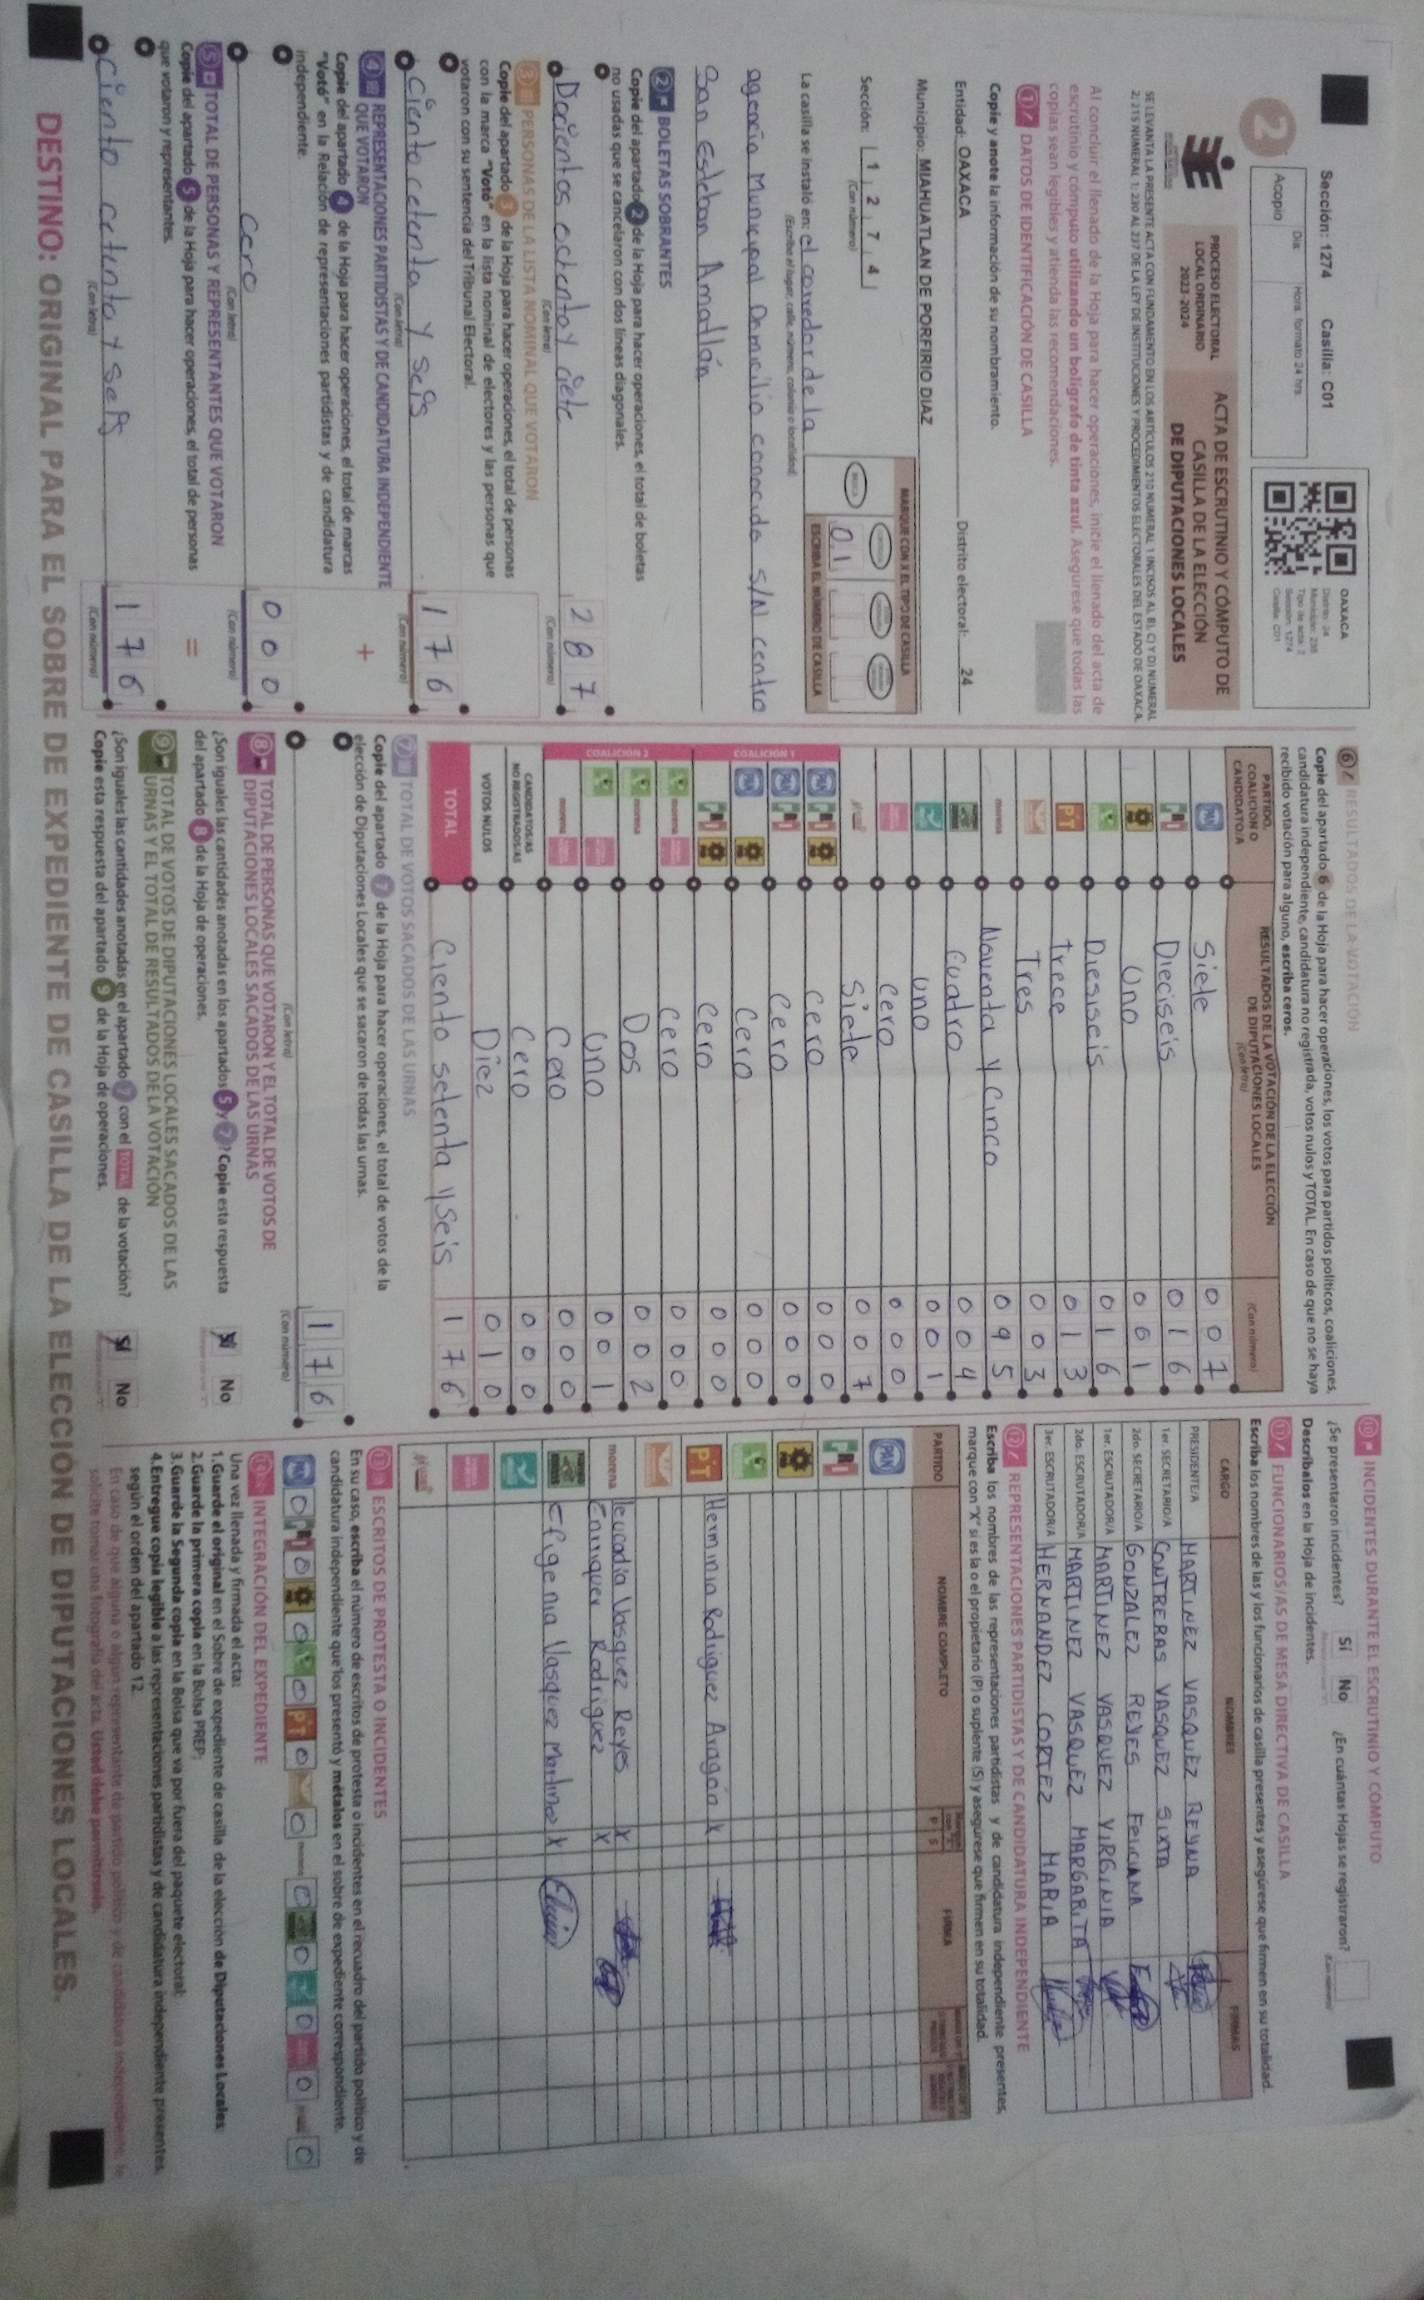 Sección: 1274 Casilla: C01
2
Día: Hora: formato 24 hrs.
Acopio
OAXACA
Distrito: 24
Tipo de acta: 2
Sección: 1274
Casilla: C01
PROCESO ELECTORAL
LOCAL ORDINARIO
2023-2024
ACTA DE ESCRUTINIO Y CÓMPUTO DE
CASILLA DE LA ELECCIÓN
DE DIPUTACIONES LOCALES
SE LEVANTA LA PRESENTE ACTA CON FUNDAMENTO EN LOS ARTÍCULOS 210 NUMERAL 1 INCISOS A), B), C) Y D) NUMERAL
2; 215 NUMERAL 1; 230 AL 237 DE LA LEY DE INSTITUCIONES Y PROCEDIMIENTOS ELECTORALES DEL ESTADO DE OAXACA.
Al concluir el llenado de la Hoja para hacer operaciones, inicie el llenado del acta de
escrutinio y cómputo utilizando un bolígrafo de tinta azul. Asegúrese que todas las
copias sean legibles y atienda las recomendaciones.
1 DATOS DE IDENTIFICACIÓN DE CASILLA
Copie y anote la información de su nombramiento.
Entidad: OAXACA Distrito electoral: 24
Municipio: MIAHUATLAN DE PORFIRIO DIAZ
Sección: 1 2 7 4
(Con número)
MARQUE CON X EL TIPO DE CASILLA
0 1
ESCRIBA EL NÚMERO DE CASILLA
La casilla se instaló en: el corredor de la
(Escriba el lugar, calle, número, colonia o localidad)
agencia Municipal Domicilio conocido S/N centro
San Esteban Amatlán
2 BOLETAS SOBRANTES
Copie del apartado 2 de la Hoja para hacer operaciones, el total de boletas
no usadas que se cancelaron con dos líneas diagonales.
Docientos ochenta y ciete 2 8 7
(Con letra) (Con número)
3 PERSONAS DE LA LISTA NOMINAL QUE VOTARON
Copie del apartado 3 de la Hoja para hacer operaciones, el total de personas
con la marca "Votó" en la lista nominal de electores y las personas que
votaron con su sentencia del Tribunal Electoral.
Ciento cetenta y seis 1 7 6
(Con letra) (Con número)
4 REPRESENTACIONES PARTIDISTAS Y DE CANDIDATURA INDEPENDIENTE
QUE VOTARON
+
Copie del apartado 4 de la Hoja para hacer operaciones, el total de marcas
"Votó" en la Relación de representaciones partidistas y de candidatura
independiente.
Cero 0 0 0
(Con letra) (Con número)
5 TOTAL DE PERSONAS Y REPRESENTANTES QUE VOTARON
=
Copie del apartado 5 de la Hoja para hacer operaciones, el total de personas
que votaron y representantes.
Ciento cetenta y seis 1 7 6
(Con letra) (Con número)
6 RESULTADOS DE LA VOTACIÓN
Copie del apartado 6 de la Hoja para hacer operaciones, los votos para partidos políticos, coaliciones,
candidatura independiente, candidatura no registrada, votos nulos y TOTAL. En caso de que no se haya
recibido votación para alguno, escriba ceros.
PARTIDO,
COALICIÓN O
CANDIDATO/A
RESULTADOS DE LA VOTACIÓN DE LA ELECCIÓN
DE DIPUTACIONES LOCALES
(Con letra) (Con número)
PAN Siete 0 0 7
PRI Dieciseis 0 1 6
Uno 0 0 1
Diesiseis 0 1 6
PT Trece 0 1 3
Tres 0 0 3
morena Noventa y Cinco 0 9 5
Cuatro 0 0 4
Uno 0 0 1
Cero 0 0 0
Siete 0 0 7
COALICIÓN 1
PAN PRI Cero 0 0 0
PAN PRI Cero 0 0 0
PAN Cero 0 0 0
PRI Cero 0 0 0
COALICIÓN 2
morena Cero 0 0 0
morena Dos 0 0 2
Uno 0 0 1
morena Cero 0 0 0
CANDIDATOS/AS
NO REGISTRADOS/AS Cero 0 0 0
VOTOS NULOS Diez 0 1 0
TOTAL Ciento setenta y seis 1 7 6
7 TOTAL DE VOTOS SACADOS DE LAS URNAS
Copie del apartado 7 de la Hoja para hacer operaciones, el total de votos de la
elección de Diputaciones Locales que se sacaron de todas las urnas.
1 7 6
(Con letra) (Con número)
8 TOTAL DE PERSONAS QUE VOTARON Y EL TOTAL DE VOTOS DE
DIPUTACIONES LOCALES SACADOS DE LAS URNAS
¿Son iguales las cantidades anotadas en los apartados 5 y 7? Copie esta respuesta
del apartado 8 de la Hoja de operaciones.
Sí No
9 TOTAL DE VOTOS DE DIPUTACIONES LOCALES SACADOS DE LAS
URNAS Y EL TOTAL DE RESULTADOS DE LA VOTACIÓN
¿Son iguales las cantidades anotadas en el apartado 7 con el TOTAL de la votación?
Copie esta respuesta del apartado 9 de la Hoja de operaciones.
Sí No
10 INCIDENTES DURANTE EL ESCRUTINIO Y CÓMPUTO
¿Se presentaron incidentes? Sí No ¿En cuántas Hojas se registraron?
Descríbalos en la Hoja de incidentes.
11 FUNCIONARIOS/AS DE MESA DIRECTIVA DE CASILLA
Escriba los nombres de las y los funcionarios de casilla presentes y asegúrese que firmen en su totalidad.
CARGO NOMBRES FIRMAS
PRESIDENTE/A MARTINEZ VASQUEZ REYNA
1er. SECRETARIO/A CONTRERAS VASQUEZ SIXTA
2do. SECRETARIO/A GONZALEZ REYES FELICIANA
1er. ESCRUTADOR/A MARTINEZ VASQUEZ VIRGINIA
2do. ESCRUTADOR/A MARTINEZ VASQUEZ MARGARITA
3er. ESCRUTADOR/A HERNANDEZ CORTEZ MARIA
12 REPRESENTACIONES PARTIDISTAS Y DE CANDIDATURA INDEPENDIENTE
Escriba los nombres de las representaciones partidistas y de candidatura independiente presentes,
marque con "X" si es la o el propietario (P) o suplente (S) y asegúrese que firmen en su totalidad.
PARTIDO NOMBRE COMPLETO P S FIRMA
PAN
PRI
PT Herminia Rodriguez Aragón X
morena leucadia Vasquez Reyes X
Enriquez Rodriguez X
Efigenia Vasquez Martinez X
13 ESCRITOS DE PROTESTA O INCIDENTES
En su caso, escriba el número de escritos de protesta o incidentes en el recuadro del partido político y de
candidatura independiente que los presentó y métalos en el sobre de expediente correspondiente.
PAN 0 PRI 0 0 0 PT 0 0 morena 0 0 0 0 0
14 INTEGRACIÓN DEL EXPEDIENTE
Una vez llenada y firmada el acta:
1. Guarde el original en el Sobre de expediente de casilla de la elección de Diputaciones Locales;
2. Guarde la primera copia en la Bolsa PREP;
3. Guarde la Segunda copia en la Bolsa que va por fuera del paquete electoral;
4. Entregue copia legible a las representaciones partidistas y de candidatura independiente presentes,
según el orden del apartado 12.
En caso de que alguna o algún representante de partido político y de candidatura independiente, le
solicite tomar una fotografía del acta, Usted debe permitírselo.
DESTINO: ORIGINAL PARA EL SOBRE DE EXPEDIENTE DE CASILLA DE LA ELECCIÓN DE DIPUTACIONES LOCALES.